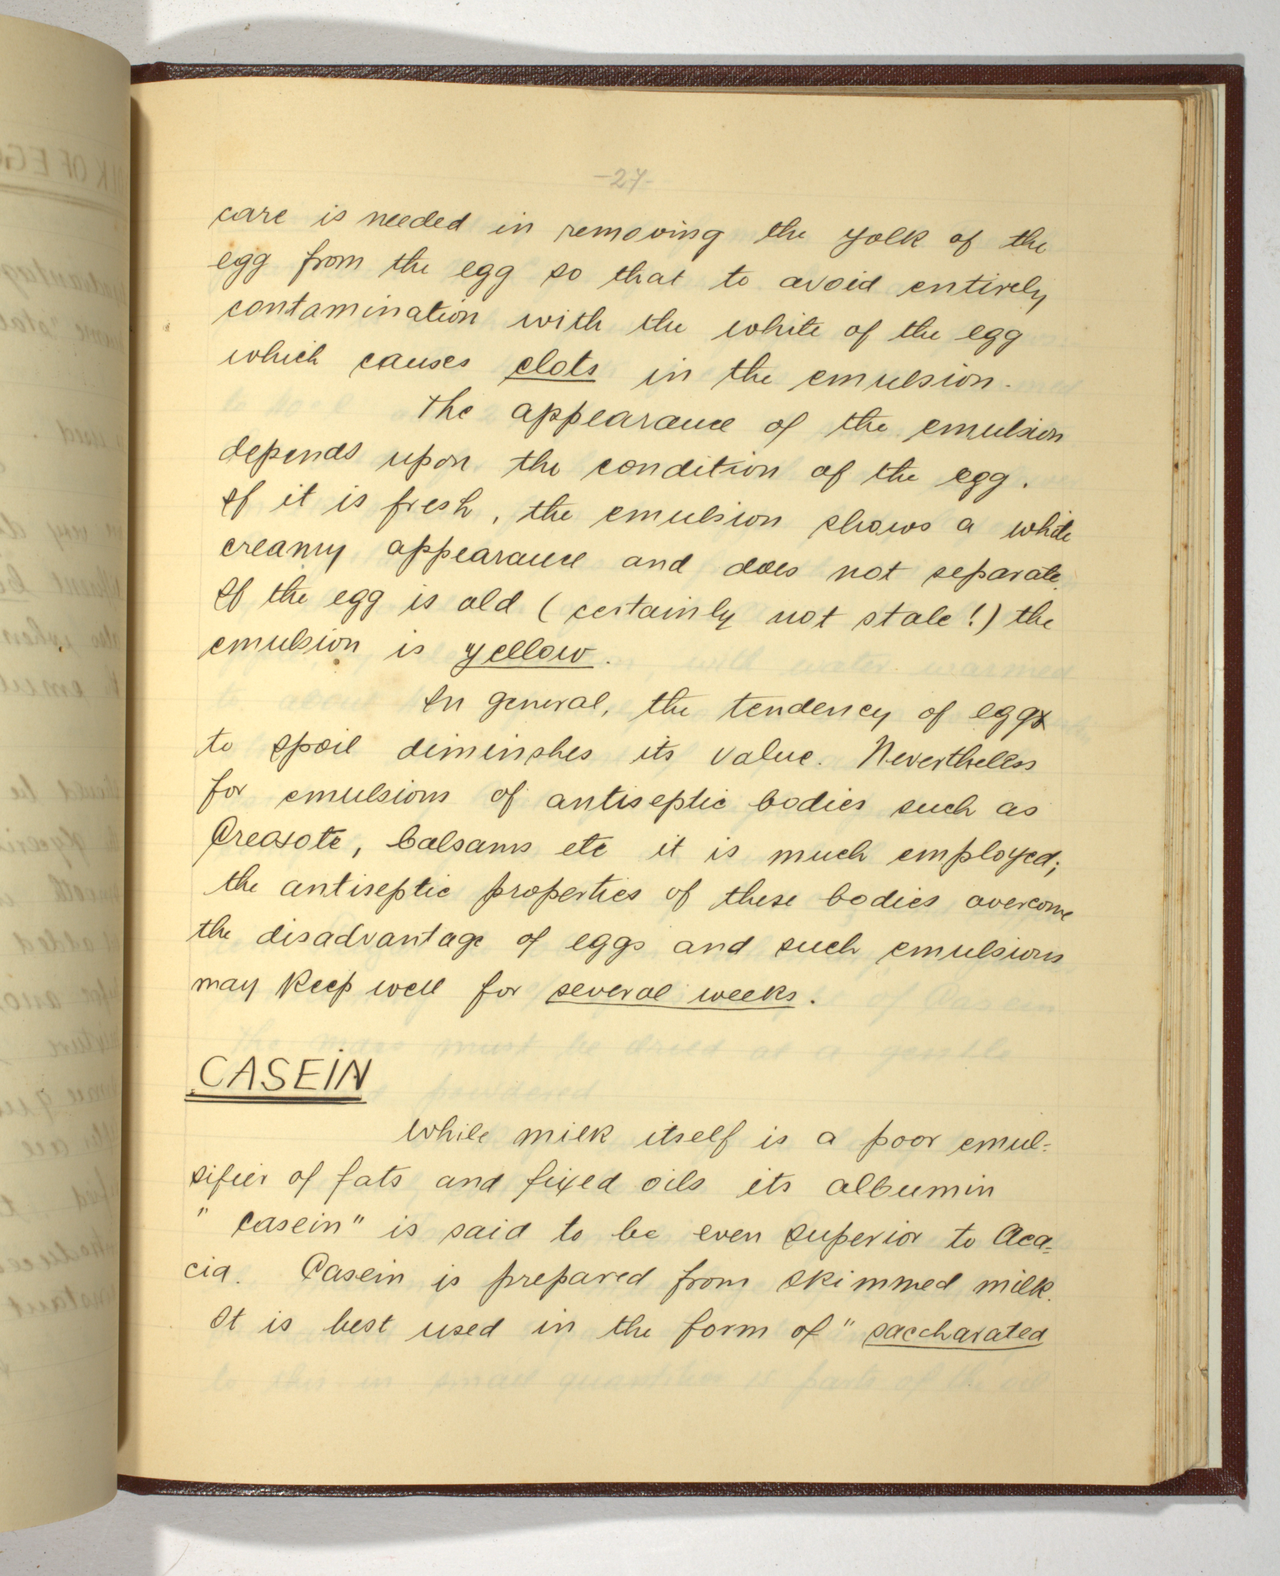 -27-
care is needed in removing the yolk of the
egg from the egg so that to avoid entirely
contamination with the white of the egg
which causes clots in the emulsion.
The appearance of the emulsion
depends upon the condition of the egg.
If it is fresh, the emulsion shows a white
creamy appearance and does not separate.
If the egg is old (certainly not stale!) the
emulsion is yellow.
In general, the tendency of eggs
to spoil diminshes its value. Nevertheless
for emulsions of antiseptic bodies such as
Creasote, balsams etc it is much employed;
the antiseptic properties of these bodies overcome
the disadvantage of eggs and such emulsions
may keep well for several weeks.
CASEIN
While milk itself is a poor emul-
sifier of fats and fixed oils its albumin
"casein" is said to be even superior to Aca-
cia. Casein is prepared from skimmed milk.
It is best used in the form of "saccharated